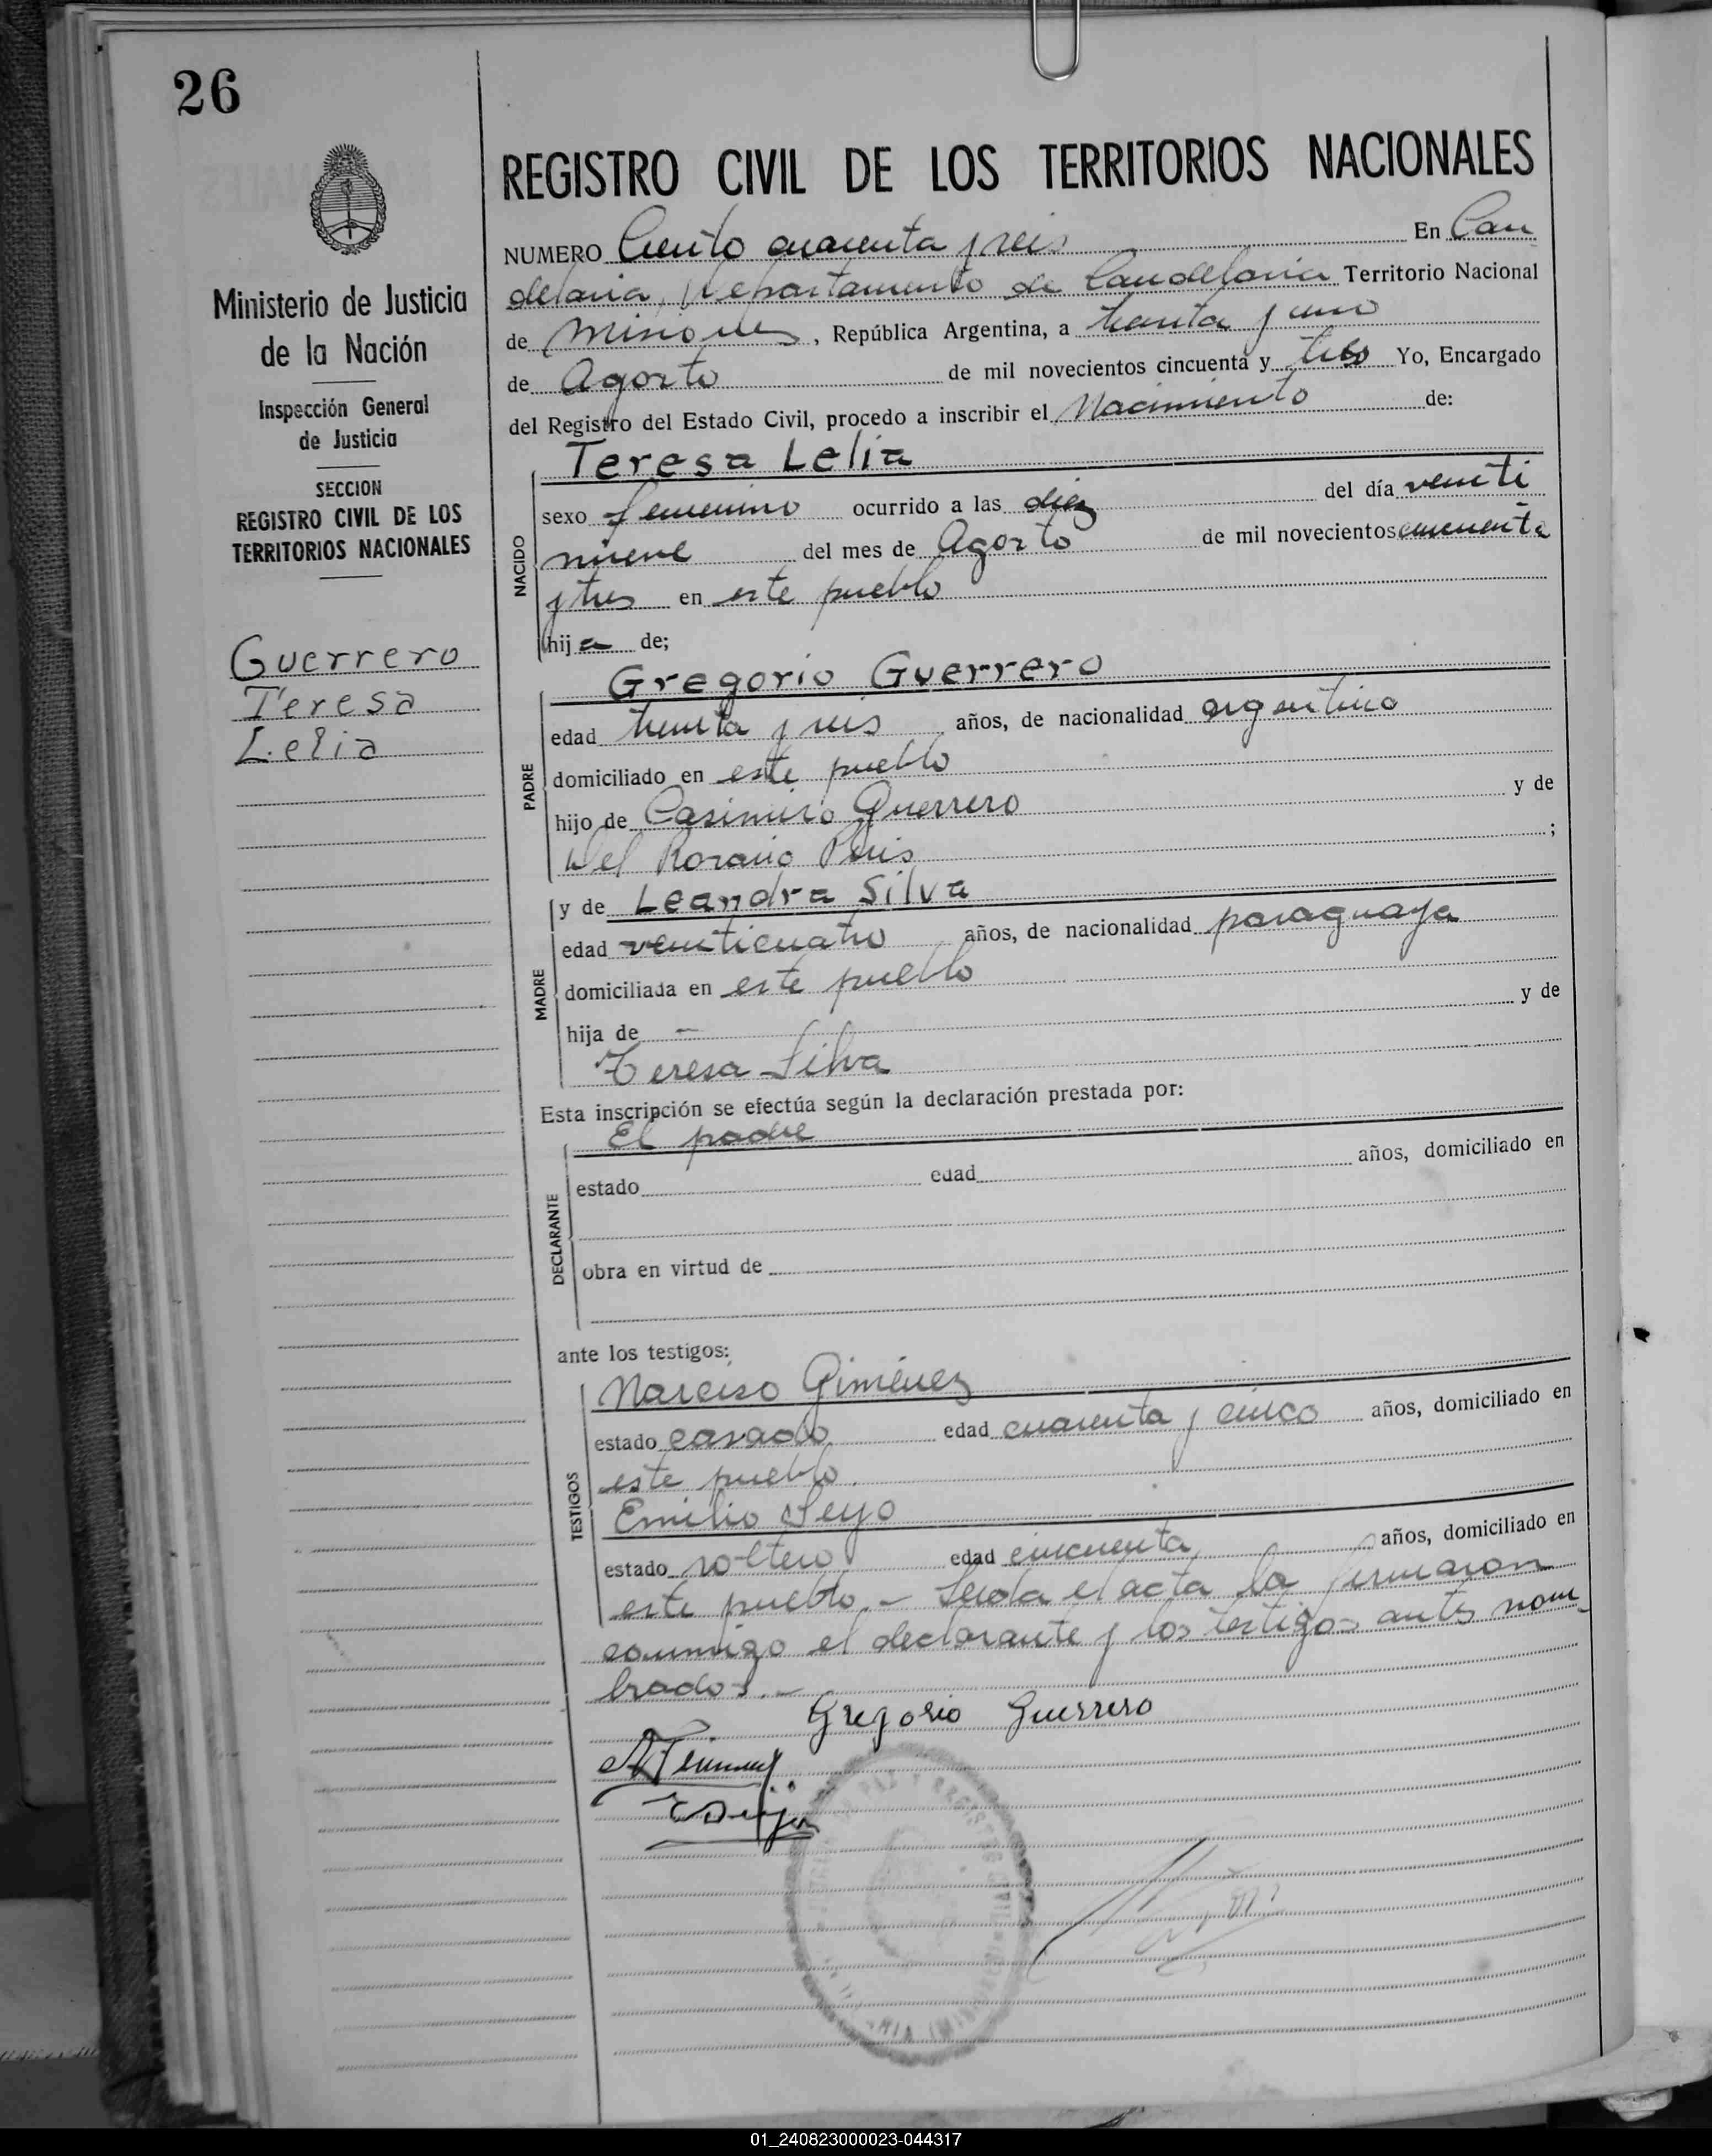 26
Ministerio de Justicia
de la Nación
Inspección General
de Justicia
SECCION
REGISTRO CIVIL DE LOS
TERRITORIOS NACIONALES
Guerrero
Teresa
Lelia
REGISTRO CIVIL DE LOS TERRITORIOS NACIONALES
NUMERO Ciento cuarenta y seis En Can
delaria, Departamento de Candelaria Territorio Nacional
de Misiones, República Argentina, a treinta y uno
de Agosto de mil novecientos cincuenta y tres Yo, Encargado
del Registro del Estado Civil, procedo a inscribir el Nacimiento de:
NACIDO
Teresa Lelia
sexo femenino ocurrido a las diez del día veinti
nueve del mes de Agosto de mil novecientos cincuenta
y tres en este pueblo
hija de;
PADRE
Gregorio Guerrero
edad treinta y seis años, de nacionalidad argentino
domiciliado en este pueblo
hijo de Casimiro Guerrero y de
Del Rosario ;
MADRE
y de Leandra Silva
edad veinticuatro años, de nacionalidad paraguaya
domiciliada en este pueblo
hija de - y de
Teresa Silva
Esta inscripción se efectúa según la declaración prestada por:
DECLARANTE
El padre
estado edad años, domiciliado en
obra en virtud de
ante los testigos:
TESTIGOS
Narciso Giménez
estado casado edad cuarenta y cinco años, domiciliado en
este pueblo.
Emilio
estado soltero edad cincuenta años, domiciliado en
este pueblo.- Leída el acta la firmaron
conmigo el declarante y los testigos antes nom
brados.-
Gregorio Guerrero
01_240823000023-044317